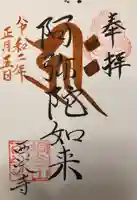 奉拝
阿弥陀如来
令和二年
正月五日